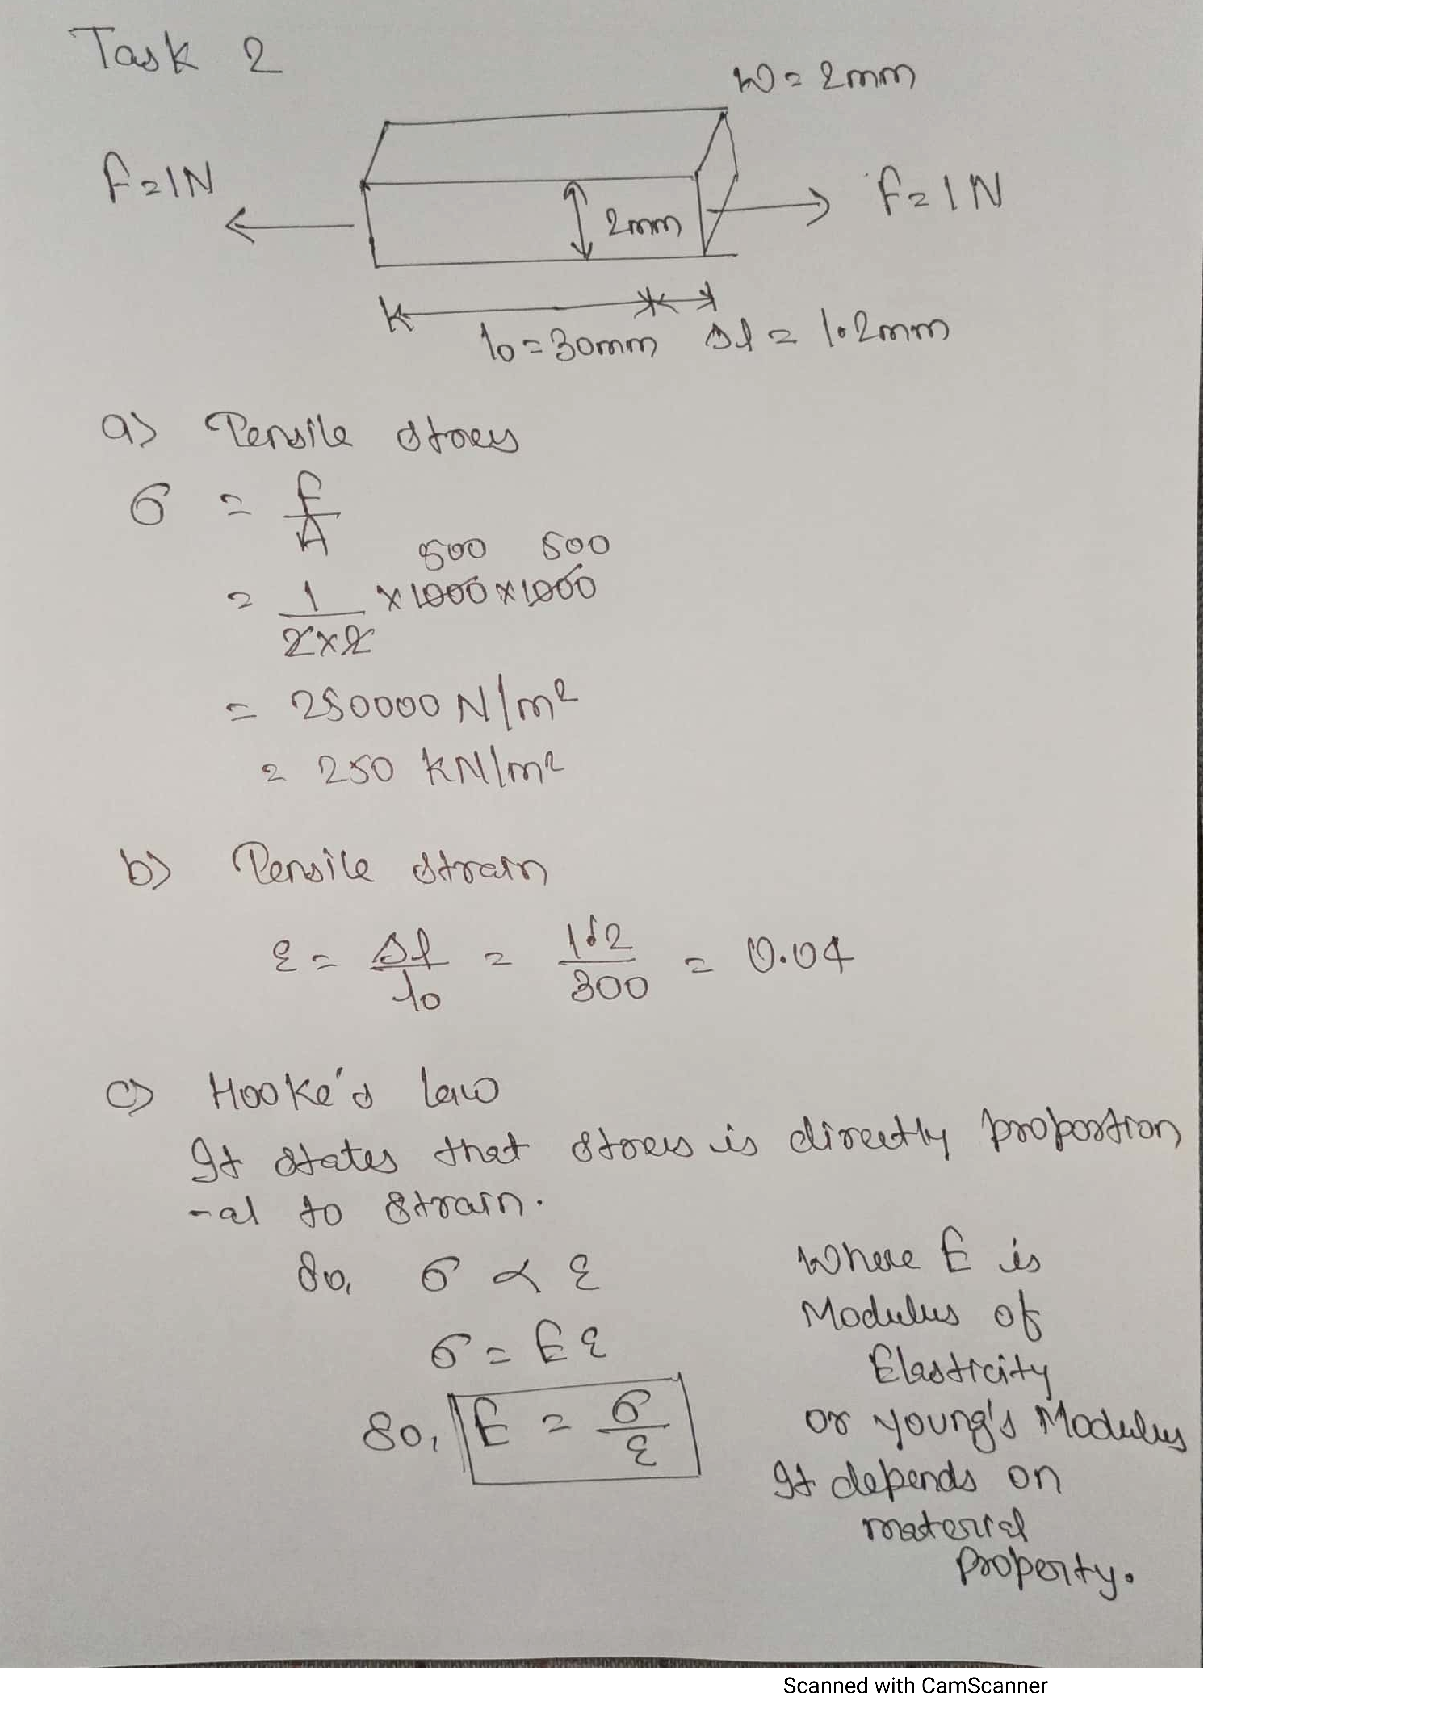 Task 2
W = 2mm
F = 1N
F = 1N
2mm
l0 = 30mm Δl = 1.2mm
a) Tensile stress
σ = F/A
500 500
= 1/(2×2) × 1000 × 1000
= 250000 N/m²
= 250 kN/m²
b) Tensile strain
ε = Δl/l0 = 1.2/300 = 0.04
c) Hooke's law
It states that stress is directly proportion
-al to strain.
So, σ ∝ ε
σ = Eε
So, E = σ/ε
Where E is
Modulus of
Elasticity
or young's Modulus
It depends on
material
Property.
Scanned with CamScanner